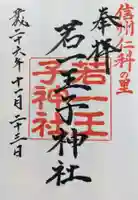 信州仁科の里
奉拝
若一王子神社
若一王
子神社
平成二十六年十一月二十三日